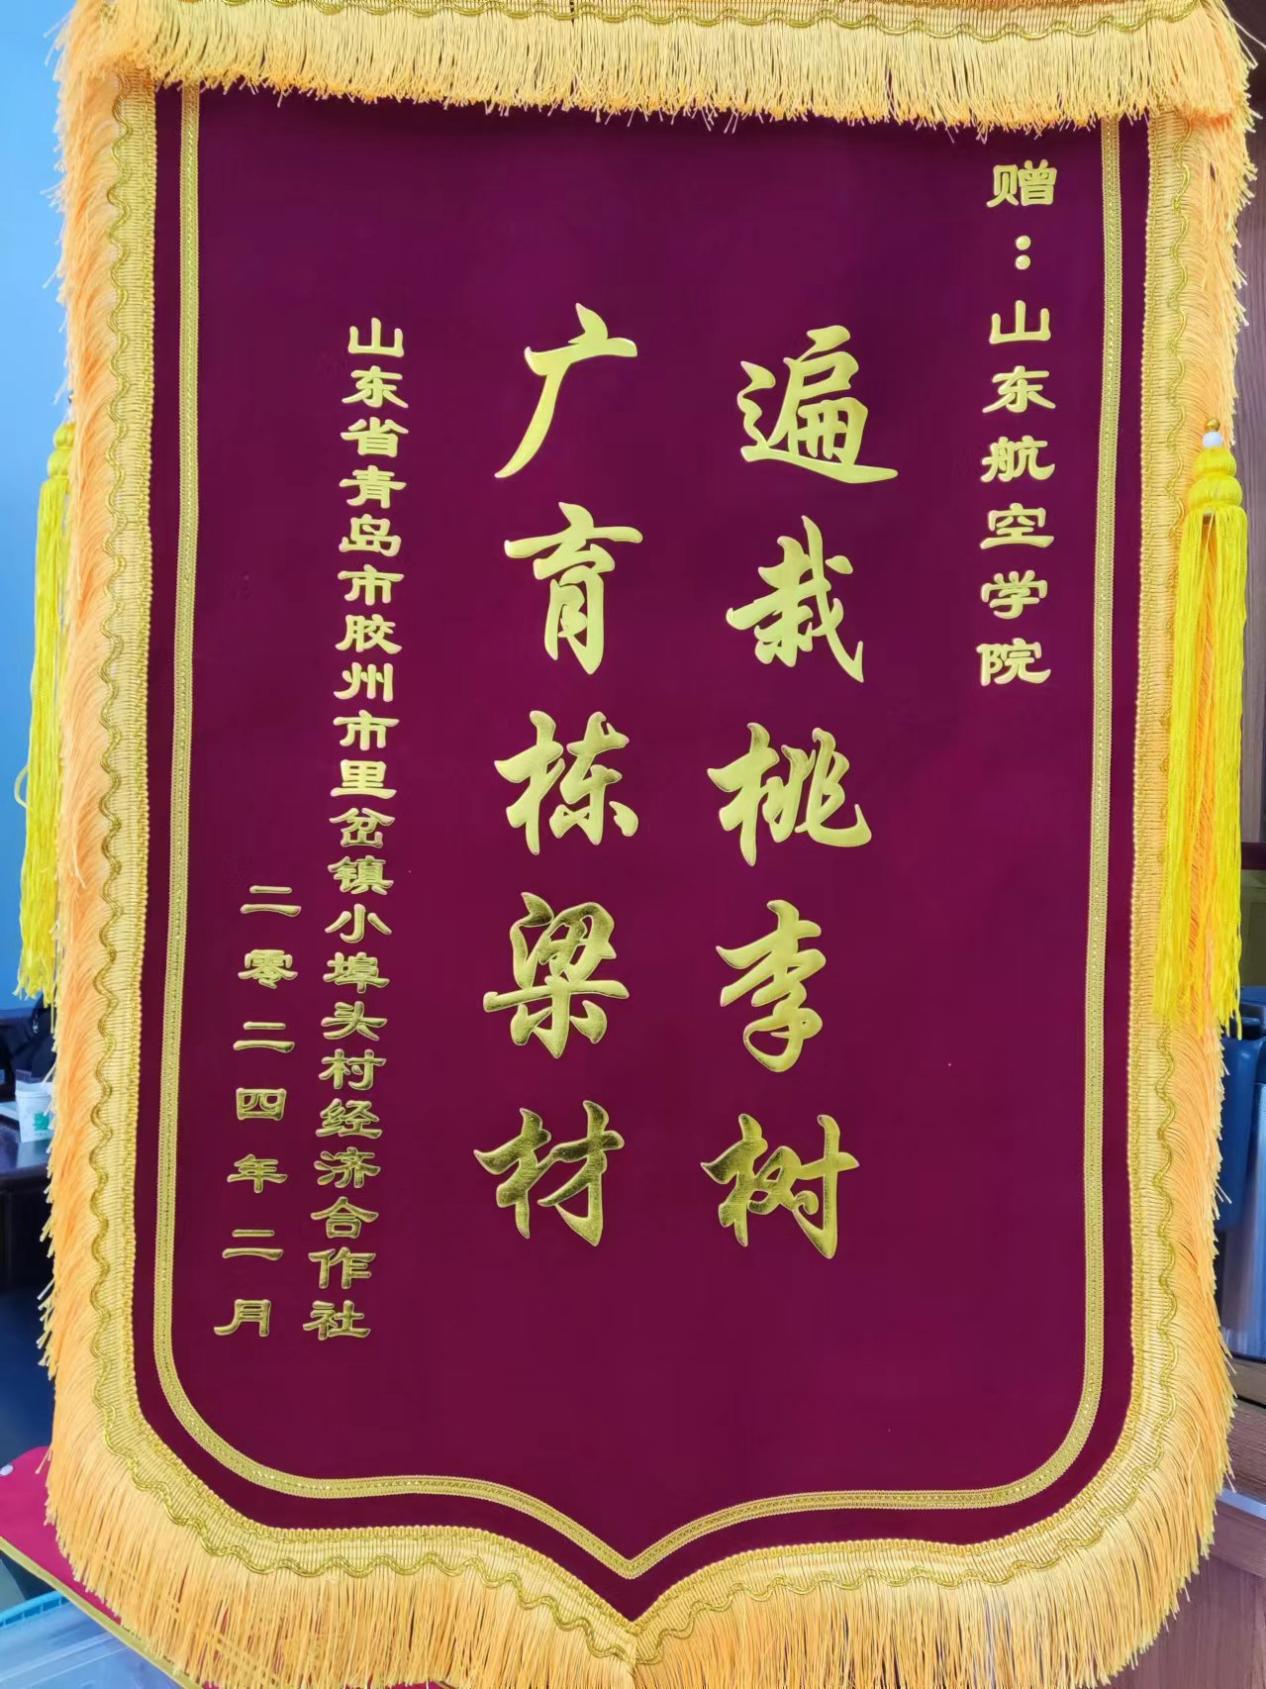 赠：山东航空学院
遍栽桃李树
广育栋梁材
山东省青岛市胶州市里岔镇小埠头村经济合作社
二零二四年二月